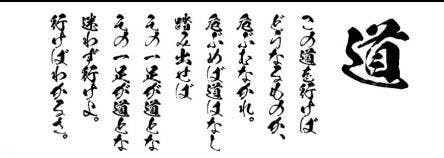 道
この道を行けば
どうなるものか、
危ぶむなかれ。
危ぶめば道はなし
踏み出せば
その一足が道とな
その一足が道とな
迷わず行けよ。
行けばわかるさ。